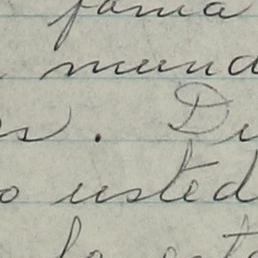 fama
mund
es. Di
o usted